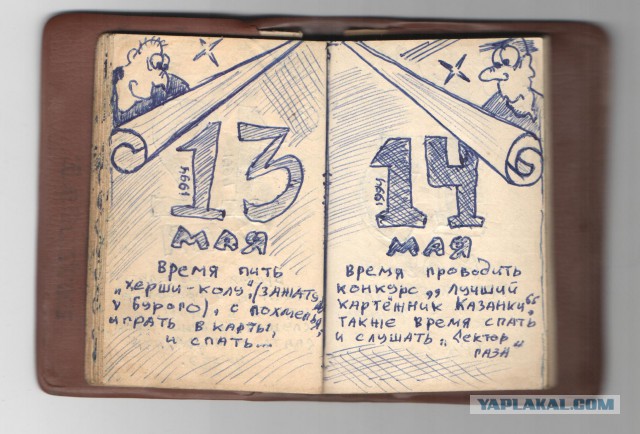 1994
13
МАЯ
Время пить
„Херши-колу", (зажату
у Бурого), с похмелья,
играть в карты,
и спать...
1994
14
МАЯ
Время проводить
конкурс „Лучший
картёжник Казанки"
также время спать
и слушать „Сектор
газа"
YAPLAKAL.COM